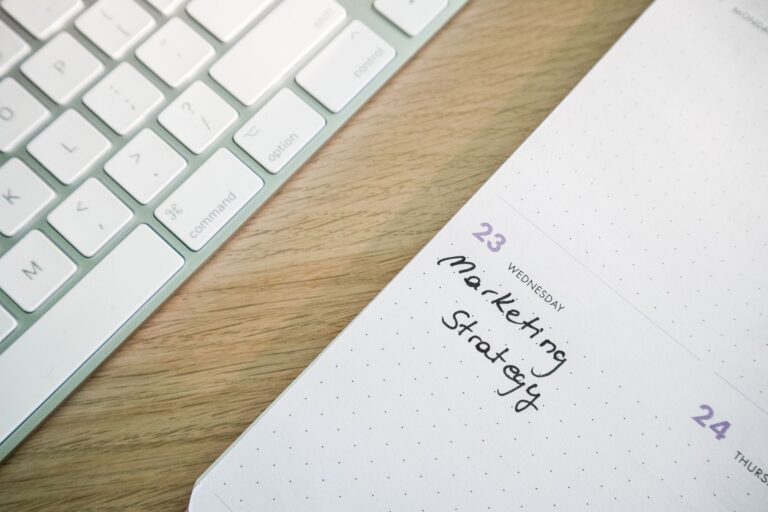 shift
P
: ;
" '
control
O
L
> .
? /
option
K
< ,
⌘
command
M
MONDAY
23
WEDNESDAY
Marketing
Strategy
24